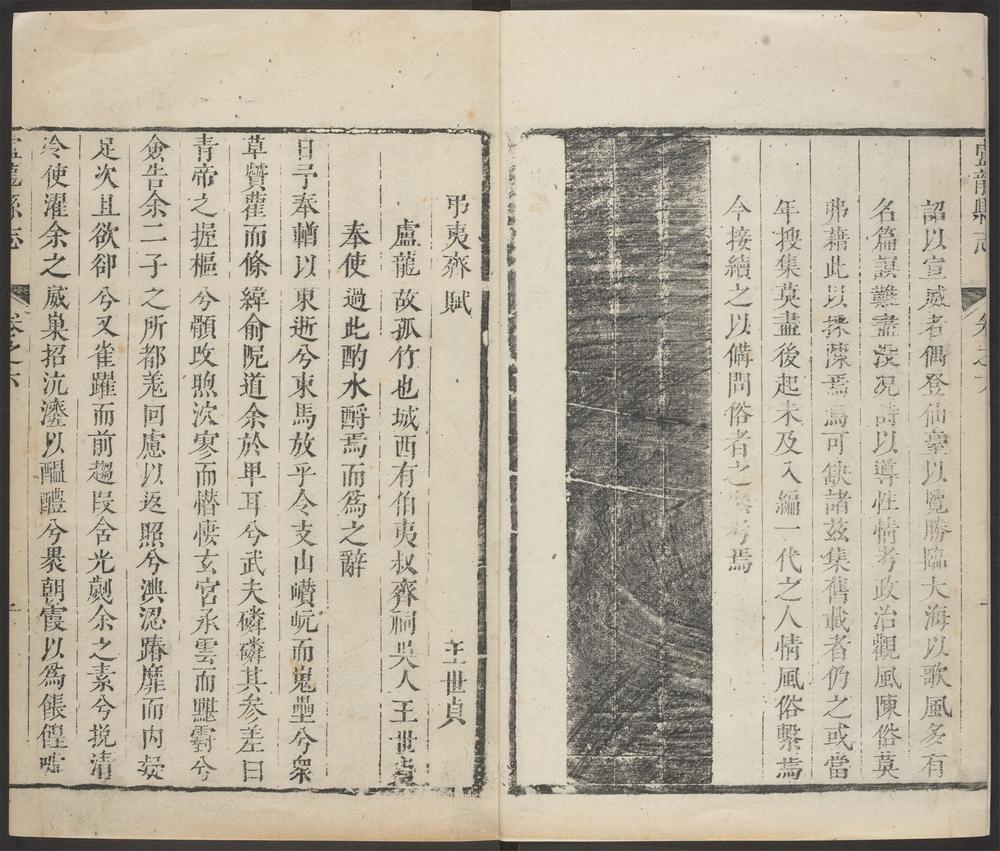 盧龍縣志
卷之六
詔以宣威者偶登仙臺以覽勝臨大海以歌風多有
名篇誤難盡没况詩以導性情考政治觀風陳俗莫
弗藉此以採焉烏可缺諸兹集舊載者仍之或當
年搜集莫盡後起未及入編一代之人情風俗繫焉
今接續之以備問俗者之考焉
弔夷齊賦
王世貞
盧龍故孤竹也城西有伯夷叔齊祠吳人王世貞
奉使過此酌水酹焉而為之辭
日予奉輶以東逝兮束馬放乎令支山巑岏而嵬壘兮衆
草贙蘿而條緯俞阮道余於卑耳兮武夫磷磷其参差曰
青帝之握樞兮顥攺煦沴寒而憯悽玄宮承雲而黮霨兮
僉告余二子之所都羗回慮以返照兮淟涊躊靡而内
足次且欲卻兮又雀躍而前趨叚含光劌余之素兮挽清
泠使濯余之威巢招沆瀣以醞醴兮褁朝霞以為餦餭
盧龍縣志
卷之六